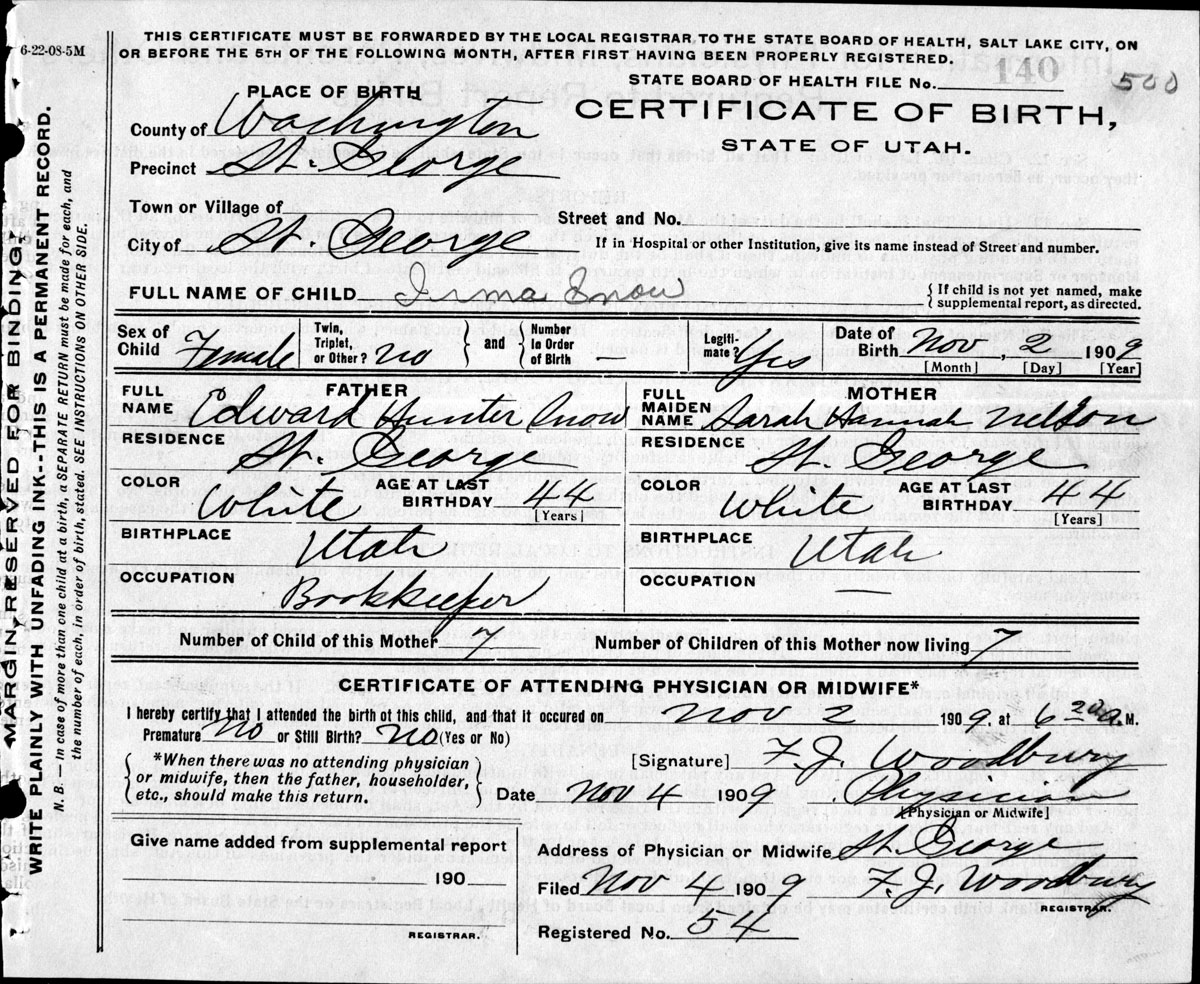 6-22-08-5M
THIS CERTIFICATE MUST BE FORWARDED BY THE LOCAL REGISTRAR TO THE STATE BOARD OF HEALTH, SALT LAKE CITY, ON
OR BEFORE THE 5TH OF THE FOLLOWING MONTH, AFTER FIRST HAVING BEEN PROPERLY REGISTERED.
STATE BOARD OF HEALTH FILE No. 140 500
PLACE OF BIRTH
CERTIFICATE OF BIRTH,
STATE OF UTAH.
County of Washington
Precinct St. George
Town or Village of
Street and No.
City of St. George
If in Hospital or other Institution, give its name instead of Street and number.
FULL NAME OF CHILD Irma Snow
If child is not yet named, make
supplemental report, as directed.
Sex of Child Female
Twin, Triplet, or Other? no
and
Number in Order of Birth
Legitimate? Yes
Date of Birth Nov, 2 1909
[Month] [Day] [Year]
FATHER
FULL NAME Edward Hunter Snow
MOTHER
FULL MAIDEN NAME Sarah Hannah Nelson
RESIDENCE St. George
RESIDENCE St. George
COLOR White AGE AT LAST BIRTHDAY 44 [Years]
COLOR White AGE AT LAST BIRTHDAY 44 [Years]
BIRTHPLACE Utah
BIRTHPLACE Utah
OCCUPATION Bookkeeper
OCCUPATION —
Number of Child of this Mother 7
Number of Children of this Mother now living 7
CERTIFICATE OF ATTENDING PHYSICIAN OR MIDWIFE*
I hereby certify that I attended the birth of this child, and that it occured on Nov 2 1909. at 6 20 a.M.
Premature No or Still Birth? no (Yes or No)
*When there was no attending physician
or midwife, then the father, householder,
etc., should make this return.
[Signature] F. J. Woodbury
Date Nov 4 1909 Physician
[Physician or Midwife]
Give name added from supplemental report
190
REGISTRAR.
Address of Physician or Midwife St. George
Filed Nov 4 1909 F. J. Woodbury
REGISTRAR.
Registered No. 54
MARGIN RESERVED FOR BINDING.
WRITE PLAINLY WITH UNFADING INK--THIS IS A PERMANENT RECORD.
N. B. — In case of more than one child at a birth, a SEPARATE RETURN must be made for each, and
the number of each, in order of birth, stated. SEE INSTRUCTIONS ON OTHER SIDE.